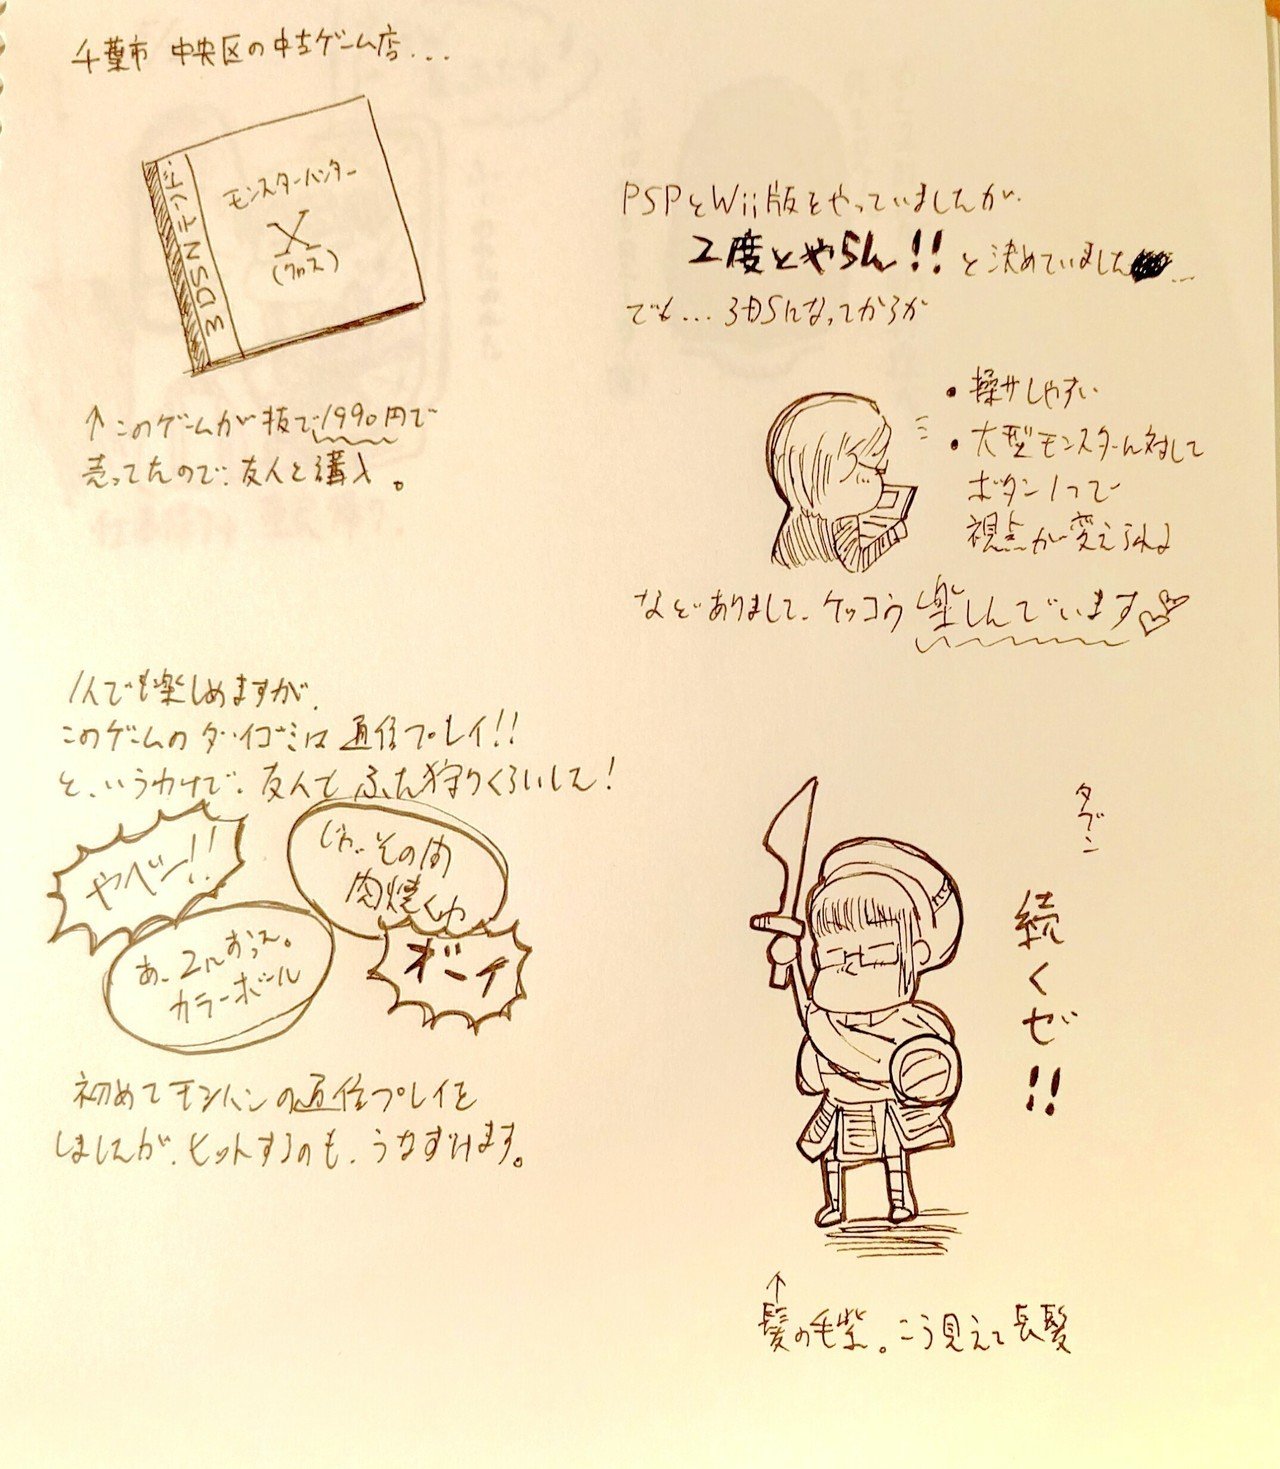 千葉市 中央区の中古ゲーム店...
3DSNテンドー
モンスターハンター
X
(クロス)
↑このゲームが税抜で1990円で
売ってたので、友人と購入。
PSPとWii版をやっていましたが、
2度とやらん!! と決めていました...
でも... 3DSになってからか
・操サしやすい
・大型モンスターに対して
ボタン1つで
視点が変えられる
などありまして、ケッコウ楽しんでいます
1人でも楽しめますが、
このゲームのダイゴミは 通信プレイ!!
と、いうわけで、友人と ふた狩りくらいした!
やべー!!
じゃ、その内
肉焼くわ
あ、コレおっ
カラーボール
オーイ
初めてモンハンの通信プレイを
しましたが、ヒットするのも、うなずけます。
タブン
続くゼ!!
↑
髪の毛紫。こう見えて長髪